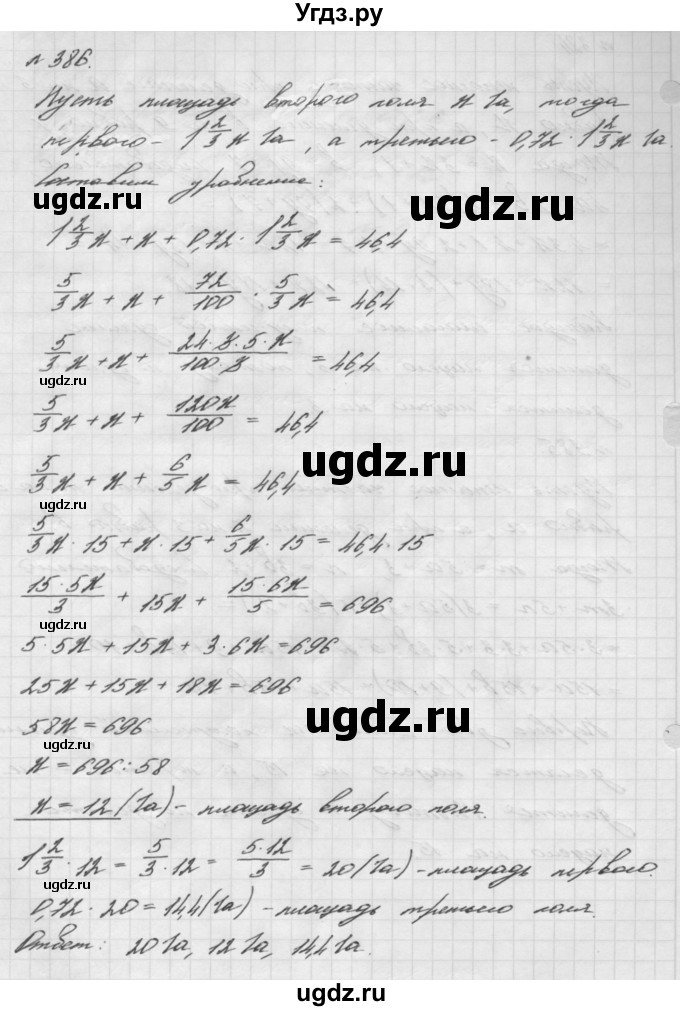 Угдз.ру
№ 386.
Пусть площадь второго поля x га, тогда
первого - 1 2/3 x га, а третьего - 0,72 · 1 2/3 x га.
Составим уравнение:
ugdz.ru
ugdz.ru
1 2/3 x + x + 0,72 · 1 2/3 x = 46,4
5/3 x + x + 72/100 · 5/3 x = 46,4
ugdz.ru
5/3 x + x + 24·3·5·x/100·3 = 46,4
ugdz.ru
5/3 x + x + 120x/100 = 46,4
ugdz.ru
ugdz.ru
5/3 x + x + 6/5 x = 46,4
5/3 x · 15 + x · 15 + 6/5 x · 15 = 46,4 · 15
ugdz.ru
15·5x/3 + 15x + 15·6x/5 = 696
5·5x + 15x + 3·6x = 696
25x + 15x + 18x = 696
ugdz.ru
58x = 696
ugdz.ru
x = 696 : 58
x = 12 (га) - площадь второго поля.
1 2/3 · 12 = 5/3 · 12 = 5·12/3 = 20 (га) - площадь первого.
ugdz.ru
0,72 · 20 = 14,4 (га) - площадь третьего поля.
Ответ: 20 га, 12 га, 14,4 га.
ugdz.ru
ugdz.ru